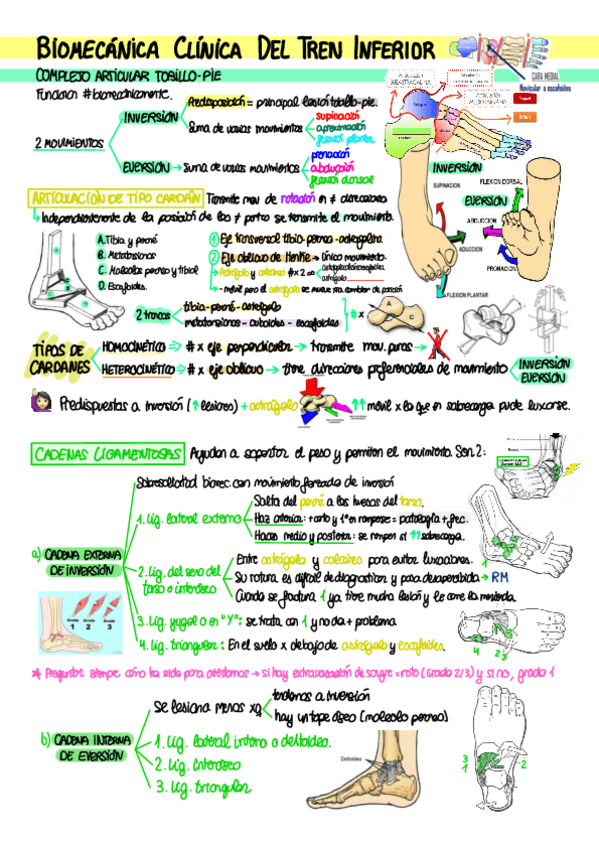 BIOMECÁNICA CLÍNICA DEL TREN INFERIOR
COMPLEJO ARTICULAR TOBILLO-PIE
CARA MEDIAL
Navicular o escafoides
Funcionan ≠ biomecánicamente.
2 MOVIMIENTOS
INVERSIÓN
Predisposición = principal lesión tobillo-pie.
Suma de varios movimientos
supinación
aproximación
flexión plantar
EVERSIÓN → Suma de varios movimientos
pronación
abducción
flexión dorsal
INVERSIÓN
SUPINACION
FLEXION DORSAL
EVERSIÓN
ABDUCCION
ADUCCION
PRONACION
FLEXION PLANTAR
ARTICULACIÓN DE TIPO CARDÁN
Transmite mov de rotación en ≠ direcciones
Independientemente de la posición de los ≠ partes se transmite el movimiento.
A. Tibia y peroné
B. Metatarsianos
C. Maleolos peroneo y tibial
D. Escafoides.
1 Eje transversal tibia-perone-astragalina
2 Eje oblicuo de Henke → Único movimiento
2 troncos
tibia-peroné-astrágalo
metatarsianos-cuboides-escafoides
# x
TIPOS DE CARDANES
HOMOCINÉTICO ⇒ # x eje perpendicular → transmite mov. puros →
HETEROCINÉTICO ⇒ # x eje oblicuo → tiene direcciones preferenciales de movimiento
INVERSIÓN
EVERSIÓN
Predispuestas a inversión (↑ lesiones) + astrágalo
↑↑ móvil x lo que en sobrecarga puede luxarse.
CADENAS LIGAMENTOSAS
Ayudan a soportar el peso y permiten el movimiento. Son 2:
a) CADENA EXTERNA DE INVERSIÓN
Sobresolicitad biomec. con movimiento forzado de inversión
1. Lig. lateral externo
Salta del peroné a los huesos del tarso.
Haz anterior: + corto y 1º en romperse = patología + frec.
Haces medio y posterior: se rompen si ↑↑ sobrecarga.
2. Lig. del seno del tarso o interóseo
Entre astrágalo y calcáneo para evitar luxaciones.
Su rotura es difícil de diagnosticar y pasa desapercibida → RM
Cuando se fractura 1 ya tiene mucha lesión y le come la movida
3. Lig. yugal o en "Y": se trata con 1 y no da + problema
4. Lig. triangular: En el suelo x debajo de astrágalo y escafoides.
Grado 1
Grado 2
Grado 3
1
4
2 3
* Preguntar siempre cómo ha sido para orientarnos → si hay extravasación de sangre = roto (Grado 2/3) y si no, grado 1
b) CADENA INTERNA DE EVERSIÓN
Se lesiona menos xq
tendemos a inversión
hay un tope óseo (maleolo peroneo)
1. Lig. lateral interno o deltoideo.
2. Lig. interóseo
3. Lig. triangular
Deltoides
3
1
2